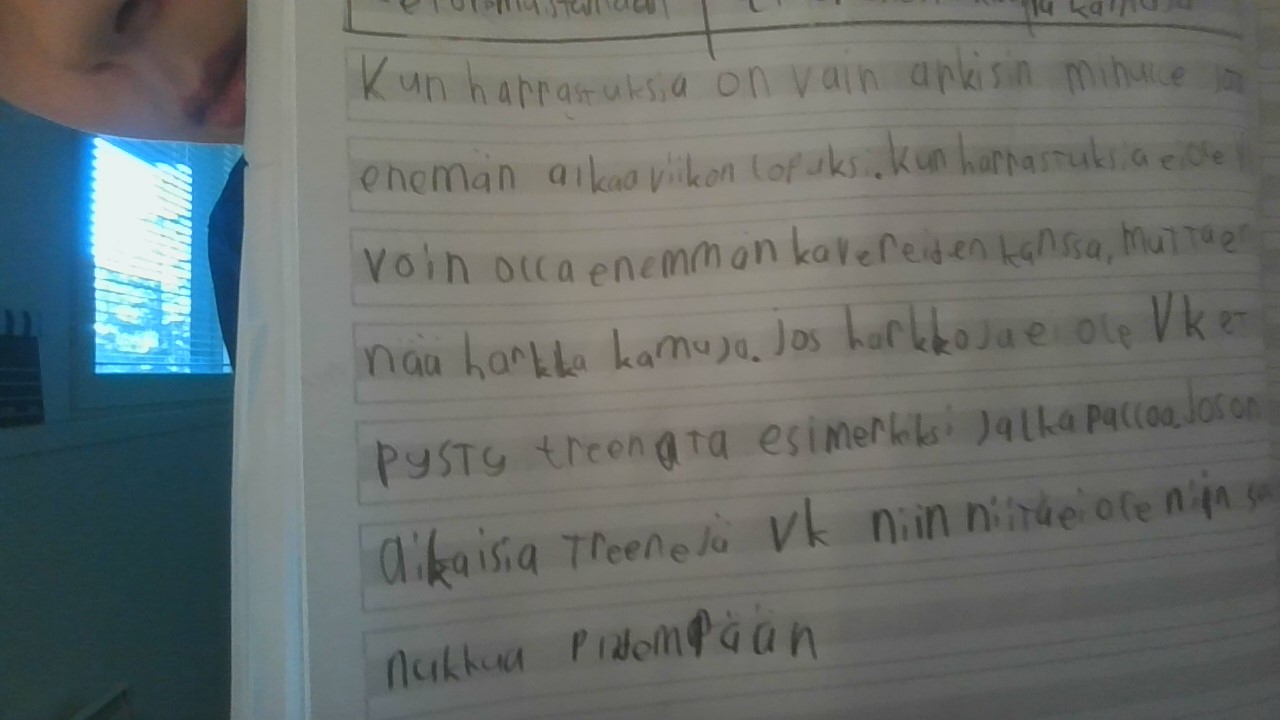 Kun harrastuksia on vain arkisin minulle jää
enemän aikaa viikon lopuksi. Kun harrastuksia ei ole
voin olla enemmän kavereiden kanssa, mutta e
nää harkka kamuja. Jos harkkoja ei ole Vk e-
pysty treenata esimerkiksi jalkapalloa. Jos on
aikaisia treenejä Vk niin niitä ei ole niin sa
nukkua pidempään